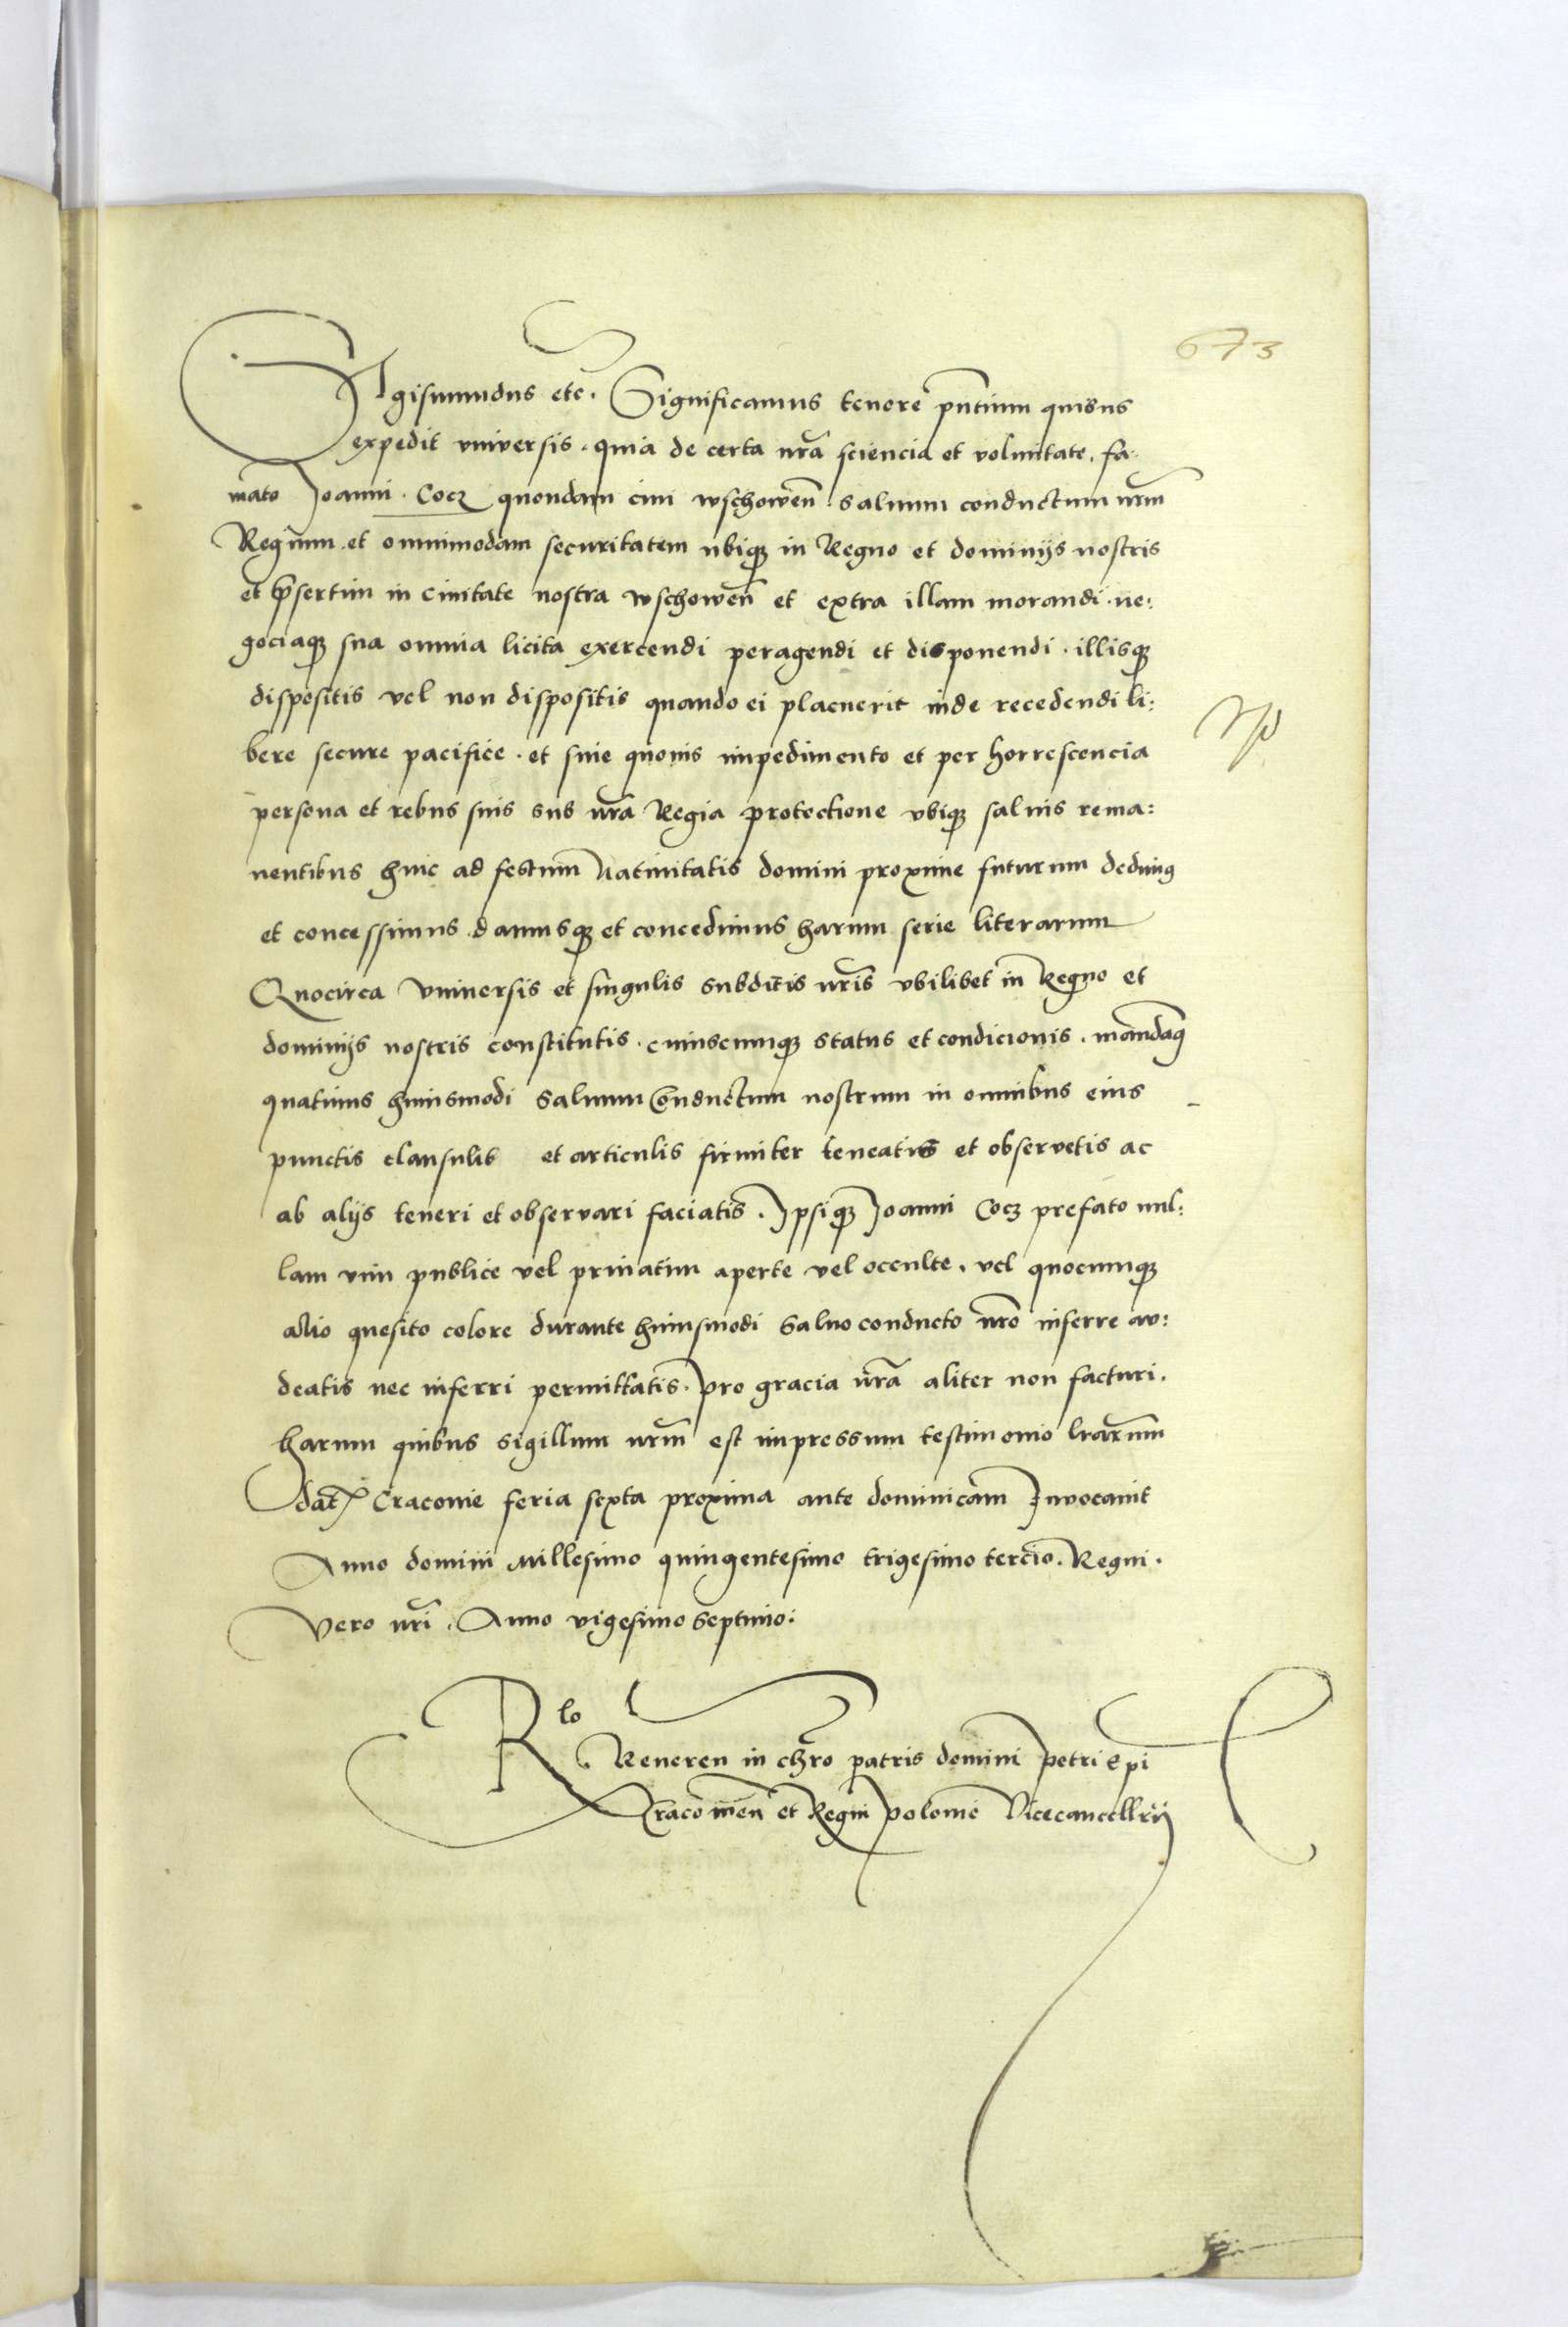 673
Sigismundus etc. Significamus tenore pñtium quibus
expedit universis. quia de certa nrã sciencia et voluntate. fa-
mato Joanni. Cocz quondam civi wschoweñ. salvum conductum nrm̃
Regium. et omnimodam securitatem ubiqȝ in Regno et dominijs nostris
et p̃sertim in civitate nostra wschoweñ et extra illam morandi. ne:
gociaqȝ sua omnia licita exercendi peragendi et disponendi. illisqȝ
dispositis vel non dispositis quando ei placuerit inde recedendi li:
bere secure pacifice. et sine quovis impedimento et per horrescencia
persona et rebus suis sub nrã Regia protectione ubiqȝ salvis rema:
nentibus hinc ad festum Nativitatis domini proxime futurum dedimꝰ
et concessimus. damusqȝ et concedimus harum serie literarum
Quocirca Universis et singulis subditis nrĩs ubilibet in Regno et
dominijs nostris constitutis. cuiuscumqȝ status et condicionis. mandamꝰ
quatinus huiusmodi salvum Conductum nostrum in omnibus eius
punctis clausulis et articulis firmiter teneatis et observetis ac
ab alijs teneri et observari faciatis. Ipsiqȝ Joanni Cocz prefato nul:
lam vim publice vel privatim aperte vel occulte. vel quocumqȝ
alio quesito colore durante huiusmodi salvo conducto nrõ inferre au:
deatis nec inferri permittatis. pro gracia nrã aliter non facturi.
harum quibus sigillum nrm̃ est impressum testimonio lrãrum
Dat̃ Cracovie feria sexta proxima ante dominicam Invocavit
Anno domini Millesimo quingentesimo trigesimo tercio. Regni.
Vero nrĩ. Anno vigesimo septimo:
Rlo Reveren in chrõ patris domini Petri Epĩ
Cracovien et Regni Polonie Vicecancellrij